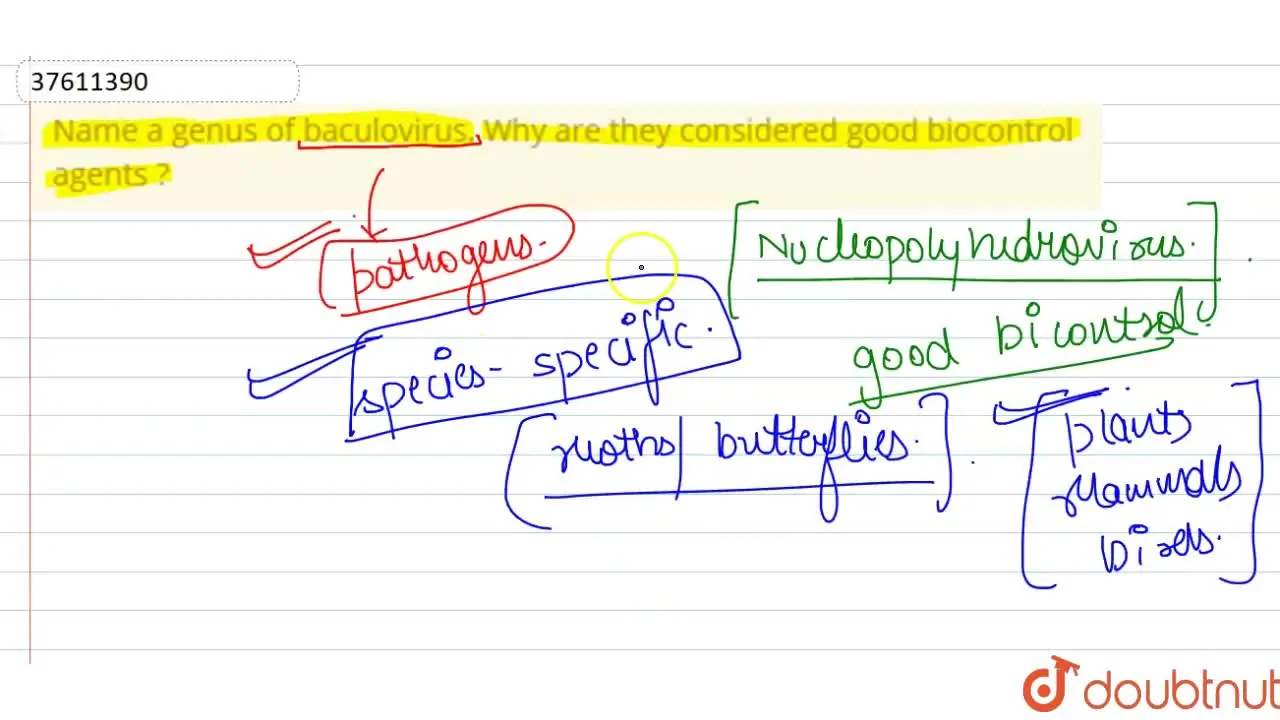 37611390
Name a genus of baculovirus. Why are they considered good biocontrol
agents ?
pathogens.
Nucleopolyhedrovirus.
species-specific.
good bicontrol.
moths| butterflies.
plants
Mammals
birds.
doubtnut